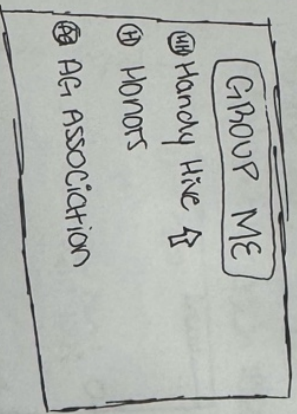 GROUP ME
HH Handy Hive
H Honors
AG AG Association